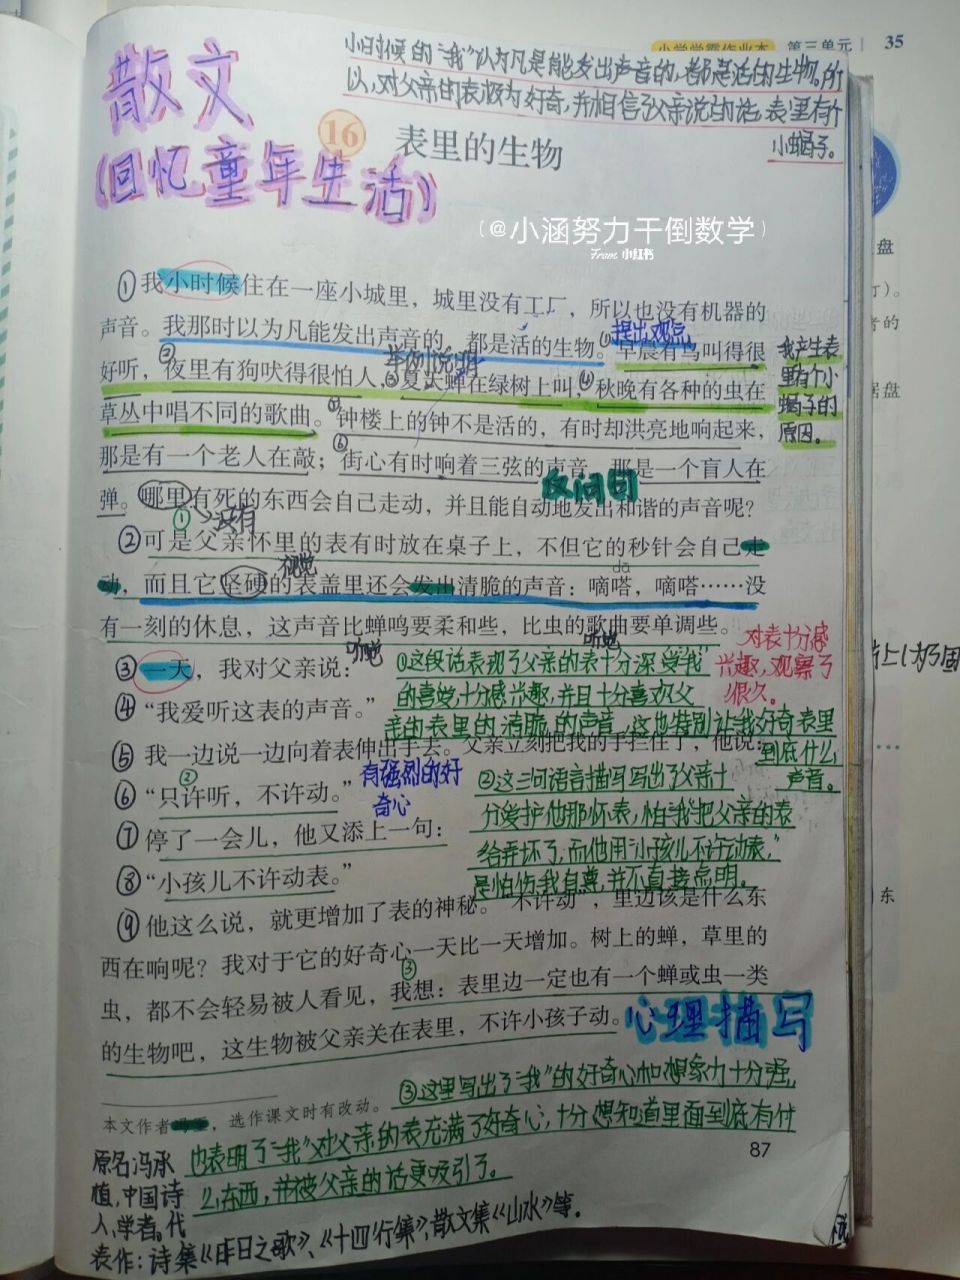 小学学霸作业本 第三单元 35
小时候的“我”认为凡是能发出声音的,都是活的生物。所
以,对父亲的表极为好奇,并相信了父亲说的话,表里有个
小蝎子。
散文
(回忆童年生活)
16 表里的生物
(@小涵努力干倒数学)
From 小红书
①我小时候住在一座小城里，城里没有工厂，所以也没有机器的
提出观点
声音。我那时以为凡能发出声音的，都是活的生物。早晨有鸟叫得很
举例说明
好听，夜里有狗吠得很怕人，夏天蝉在绿树上叫，秋晚有各种的虫在
草丛中唱不同的歌曲。钟楼上的钟不是活的，有时却洪亮地响起来，
我产生表
里有个小
蝎子的
原因。
那是有一个老人在敲；街心有时响着三弦的声音，那是一个盲人在
反问句
弹。哪里有死的东西会自己走动，并且能自动地发出和谐的声音呢？
①→没有
②可是父亲怀里的表有时放在桌子上，不但它的秒针会自己走
视觉
dā
动，而且它坚硬的表盖里还会发出清脆的声音：嘀嗒，嘀嗒……没
有一刻的休息，这声音比蝉鸣要柔和些，比虫的歌曲要单调些。
听觉
听觉
③一天，我对父亲说：
④“我爱听这表的声音。”
①这段话表现了父亲的表十分深受“我”
的喜爱,十分感兴趣,并且十分喜欢父
亲的表里的清脆的声音,这也特别让我好奇表里
到底什么
声音。
对表十分感
兴趣,观察了
很久。
⑤我一边说一边向着表伸出手去。父亲立刻把我的手拦住了，他说：
②
⑥“只许听，不许动。”
有强烈的好
奇心
⑦停了一会儿，他又添上一句：
⑧“小孩儿不许动表。”
②这三句语言描写写出了父亲十
分爱护他那怀表,怕“我”把父亲的表
给弄坏了,而他用“小孩儿不许动表,”
是怕伤我自尊,并不直接点明。
⑨他这么说，就更增加了表的神秘。“不许动”，里边该是什么东
西在响呢？我对于它的好奇心一天比一天增加。树上的蝉，草里的
③
虫，都不会轻易被人看见，我想：表里边一定也有一个蝉或虫一类
的生物吧，这生物被父亲关在表里，不许小孩子动。
心理描写
③这里写出了“我”的好奇心和想象力十分强,
也表明了“我”对父亲的表充满了好奇心,十分想知道里面到底有什
么东西,并被父亲的话更吸引了。
本文作者冯至，选作课文时有改动。
87
原名冯承
植,中国诗
人,学者。代
表作:诗集《昨日之歌》、《十四行集》,散文集《山水》等。